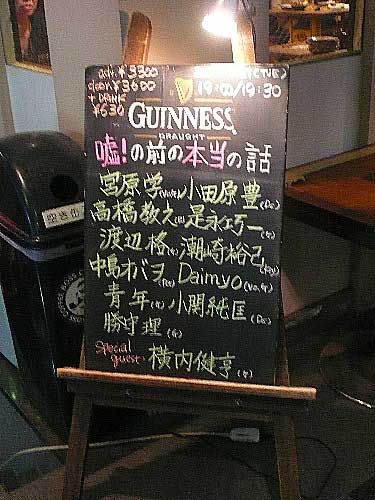 adv. ¥3300
door ¥3600
+ DRINK
¥630
19:00/19:30
GUINNESS
DRAUGHT
嘘!の前の本当の話
宮原学 小田原豊(Dr.)
高橋教之 是永巧一(G)
渡辺格(G) 潮崎裕己(Key)
中島オバヲ(Per) Daimyo(Vo,G)
青年 小関純匡(Dr.)
勝守理(G)
Special guest: 横内健亨(G)
空き缶